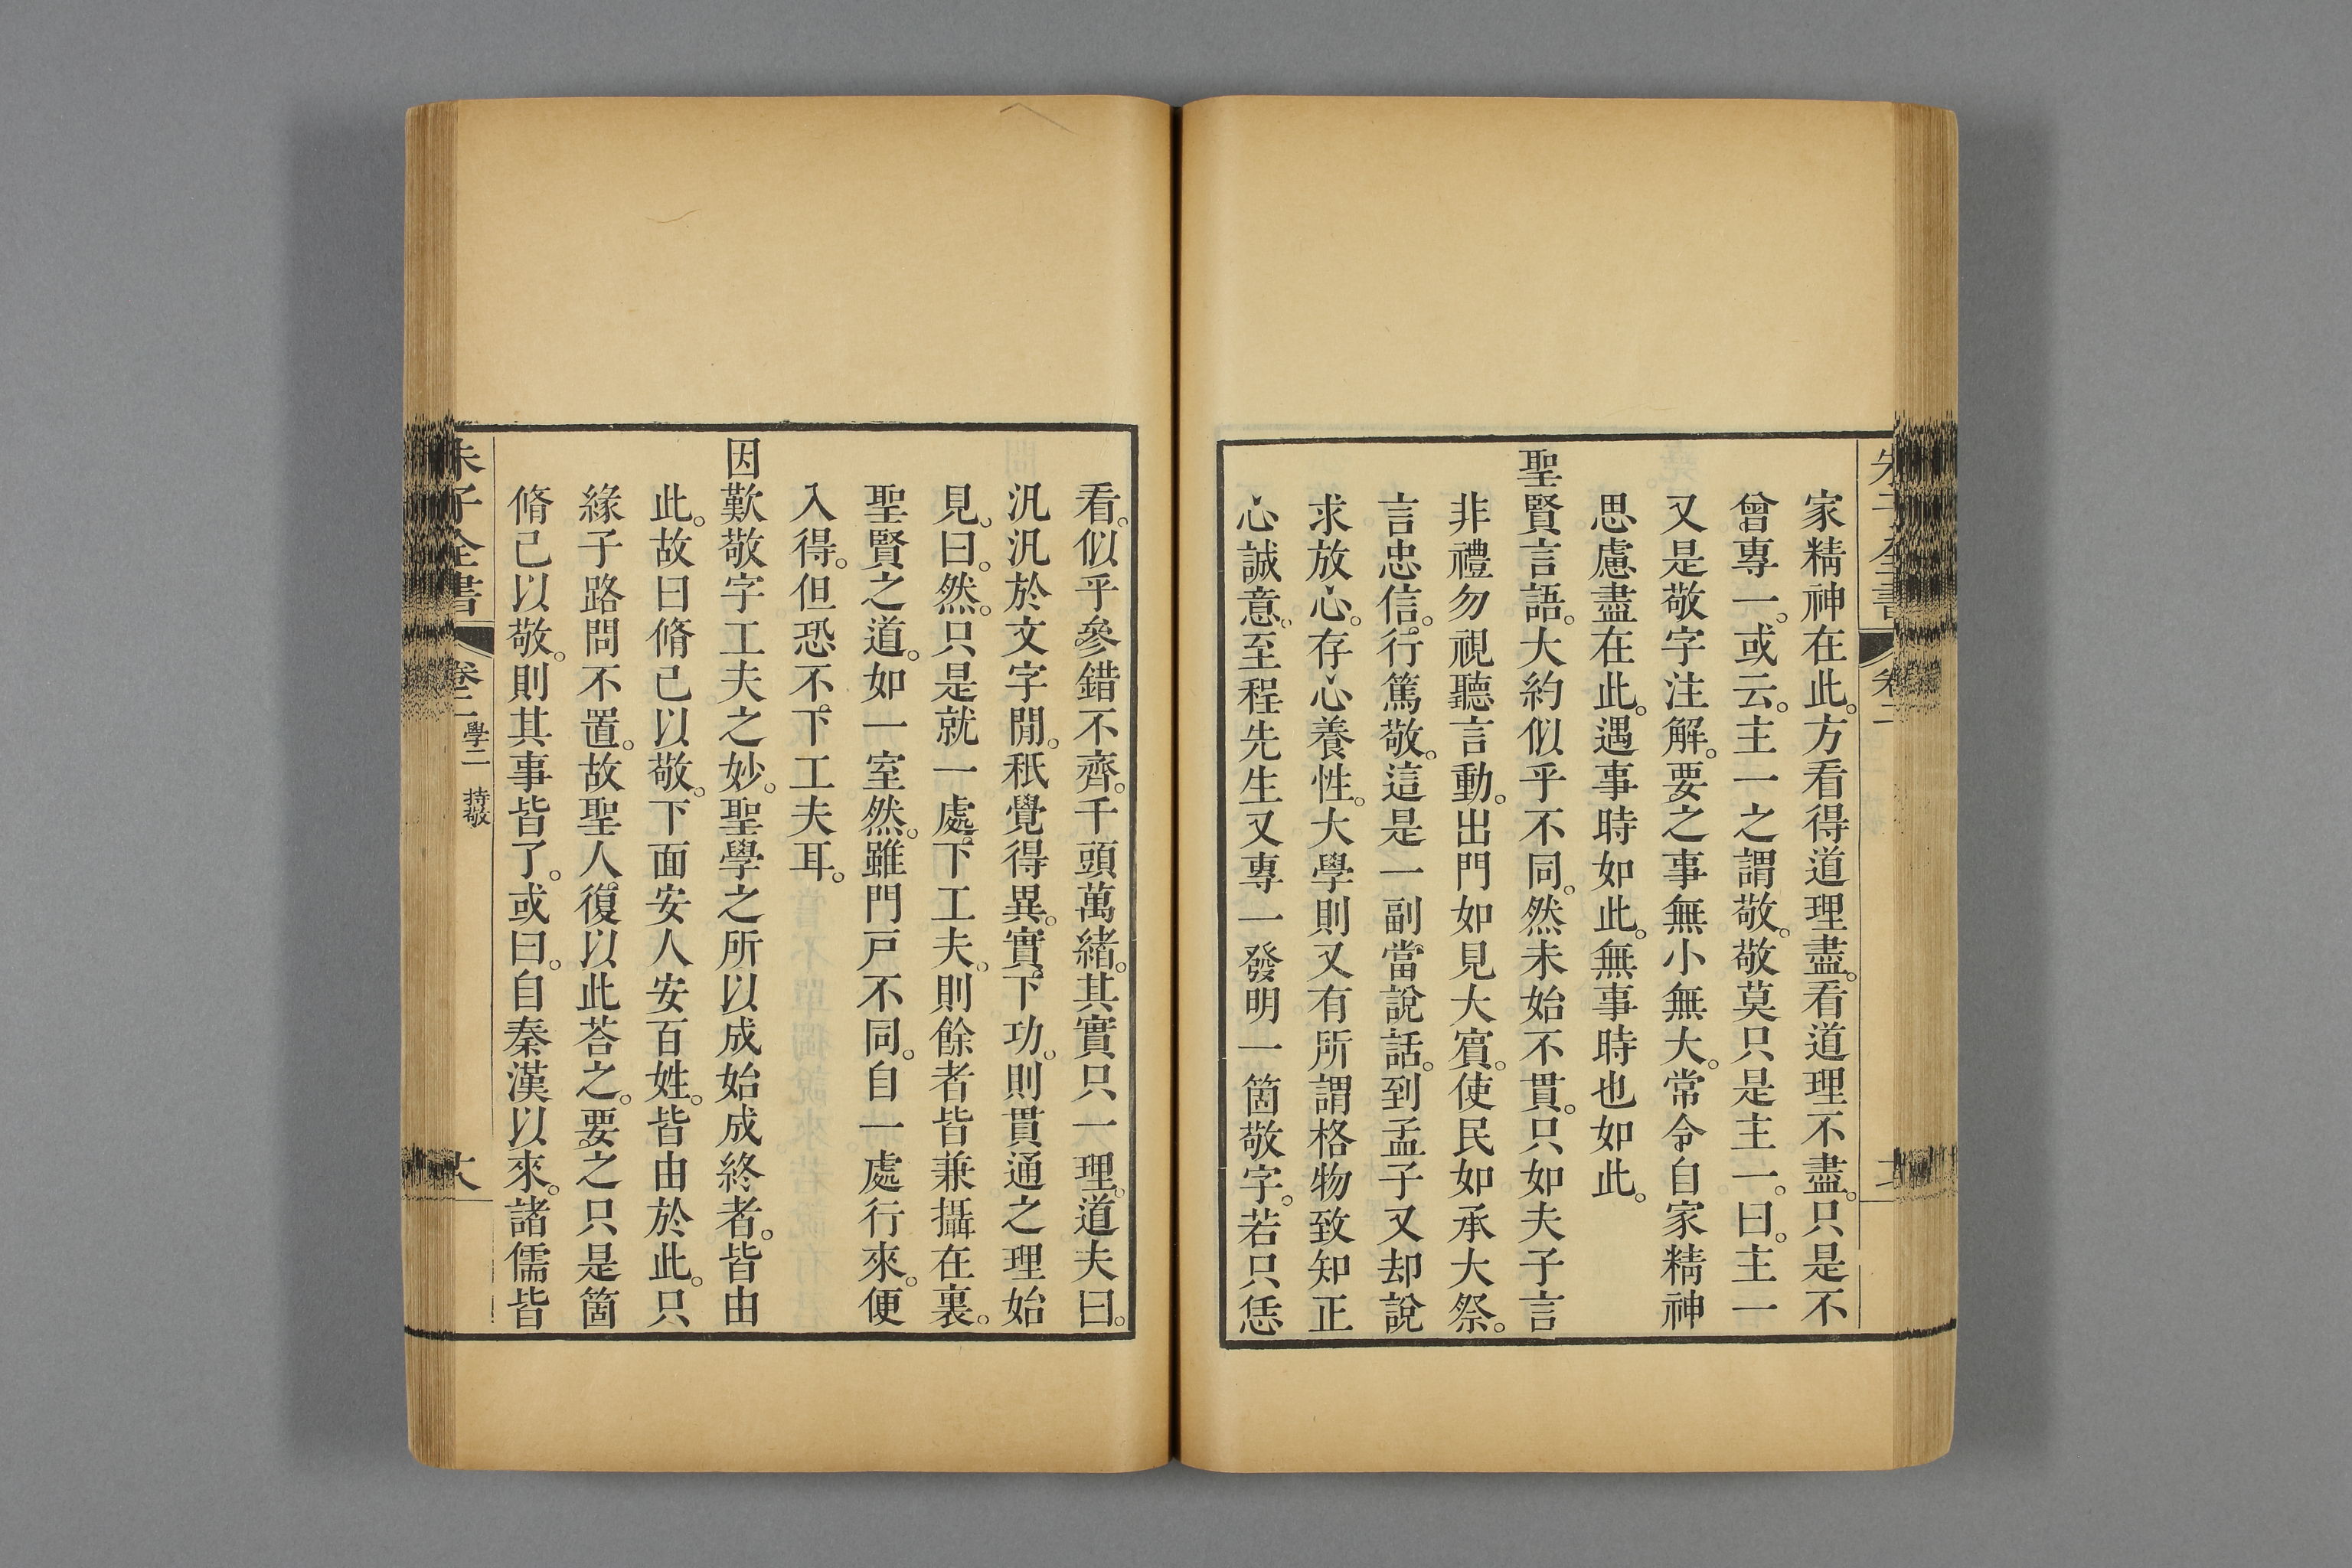 家精神在此。方看得道理盡。看道理不盡。只是不
曾專一。或云。主一之謂敬。敬莫只是主一。曰。主一
又是敬字注解。要之事無小無大。常令自家精神
思慮盡在此。遇事時如此。無事時也如此。
聖賢言語。大約似乎不同。然未始不貫。只如夫子言
非禮勿視聽言動。出門如見大賓。使民如承大祭。
言忠信。行篤敬。這是一副當說話。到孟子又却說
求放心。存心養性。大學則又有所謂格物致知正
心誠意。至程先生又專一發明一箇敬字。若只恁
看。似乎參錯不齊。千頭萬緒。其實只一理。道夫曰。
汎汎於文字閒。秖覺得異。實下功。則貫通之理始
見。曰。然。只是就一處下工夫。則餘者皆兼攝在裏。
聖賢之道。如一室然。雖門戸不同。自一處行來。便
入得。但恐不下工夫耳。
因歎敬字工夫之妙。聖學之所以成始成終者。皆由
此。故曰脩己以敬。下面安人安百姓。皆由於此。只
緣子路問不置。故聖人復以此荅之。要之只是箇
脩己以敬。則其事皆了。或曰。自秦漢以來。諸儒皆
朱子全書 卷二 學二 持敬